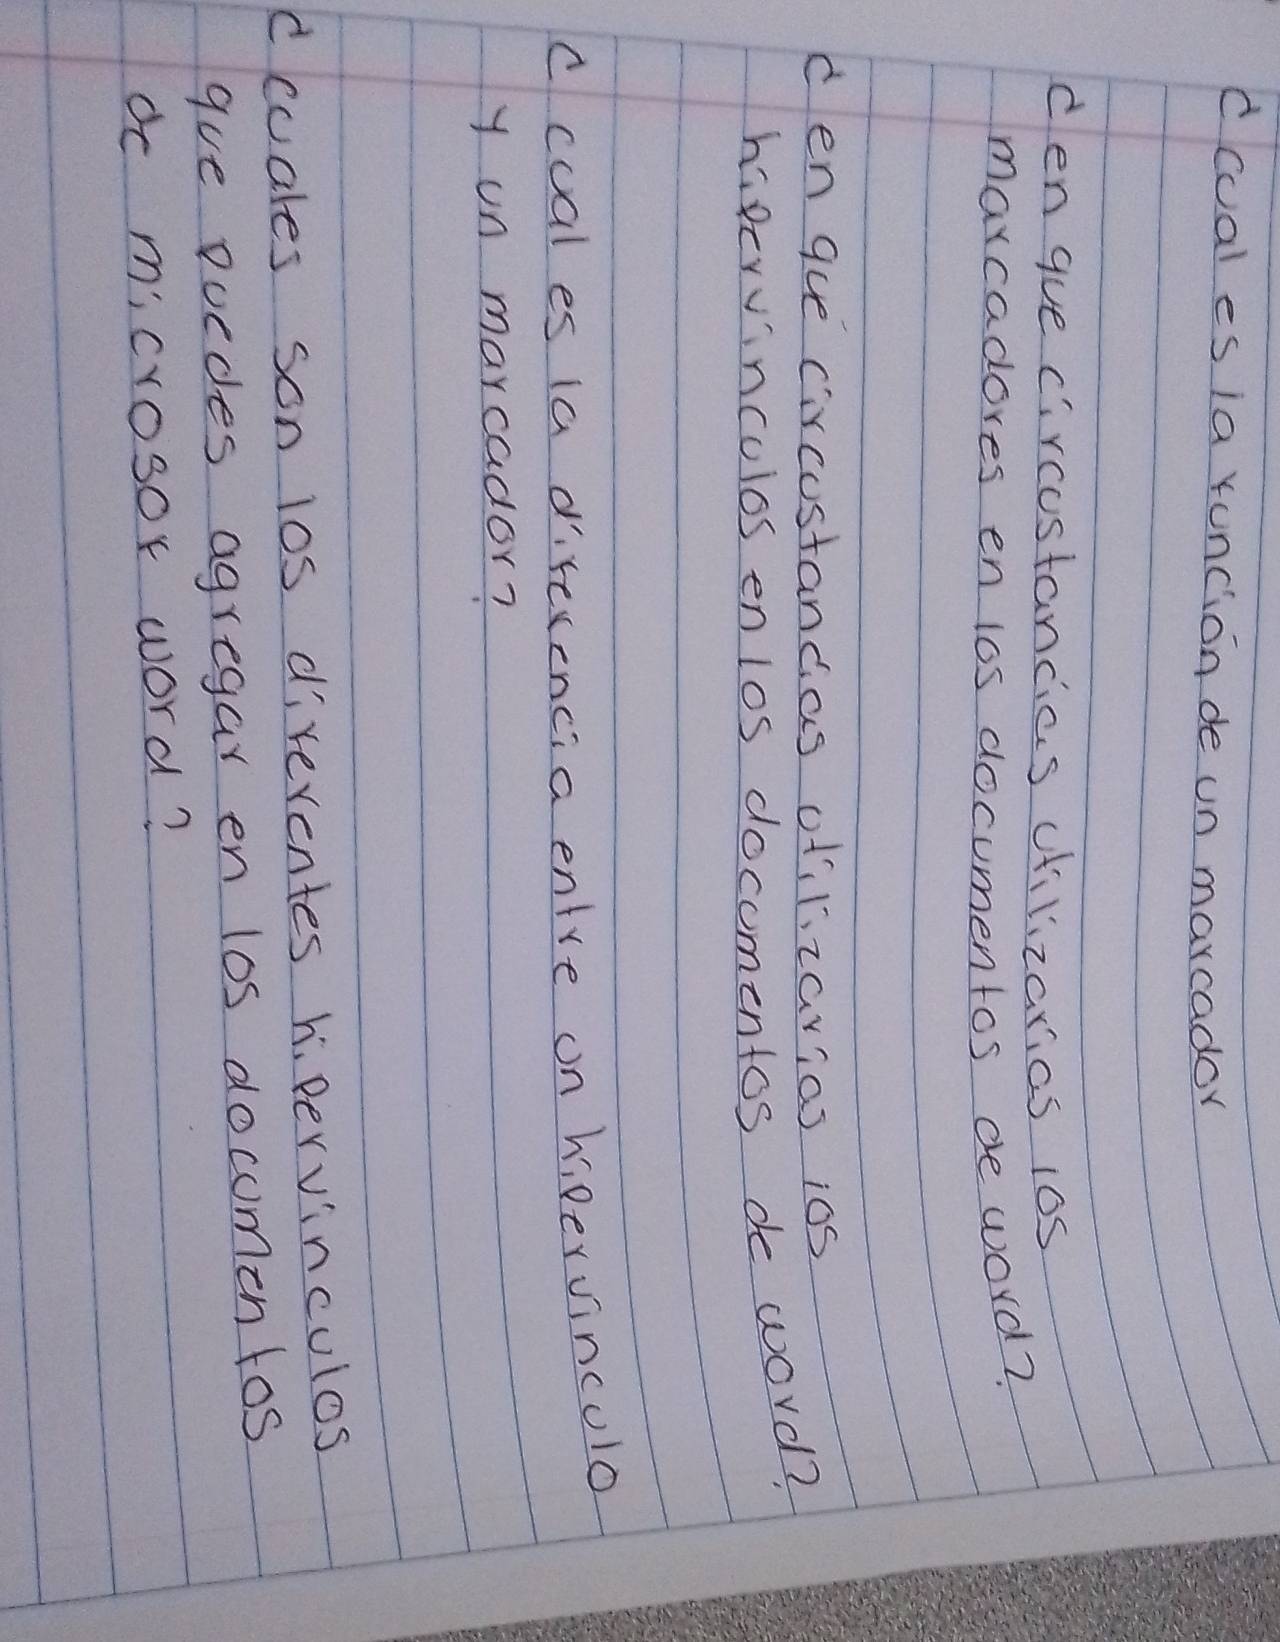 ¿ cual es la función de un marcador
¿ en que circustancias utilizarias los
marcadores en los documentos de word?
¿ en qué circustancias utilizarias los
hipervinculos en los documentos de word?
¿ cual es la diferencia entre un hipervinculo
y un marcador?
¿ cuales son los diferentes hipervinculos
que puedes agregar en los documentos
de microsof word?